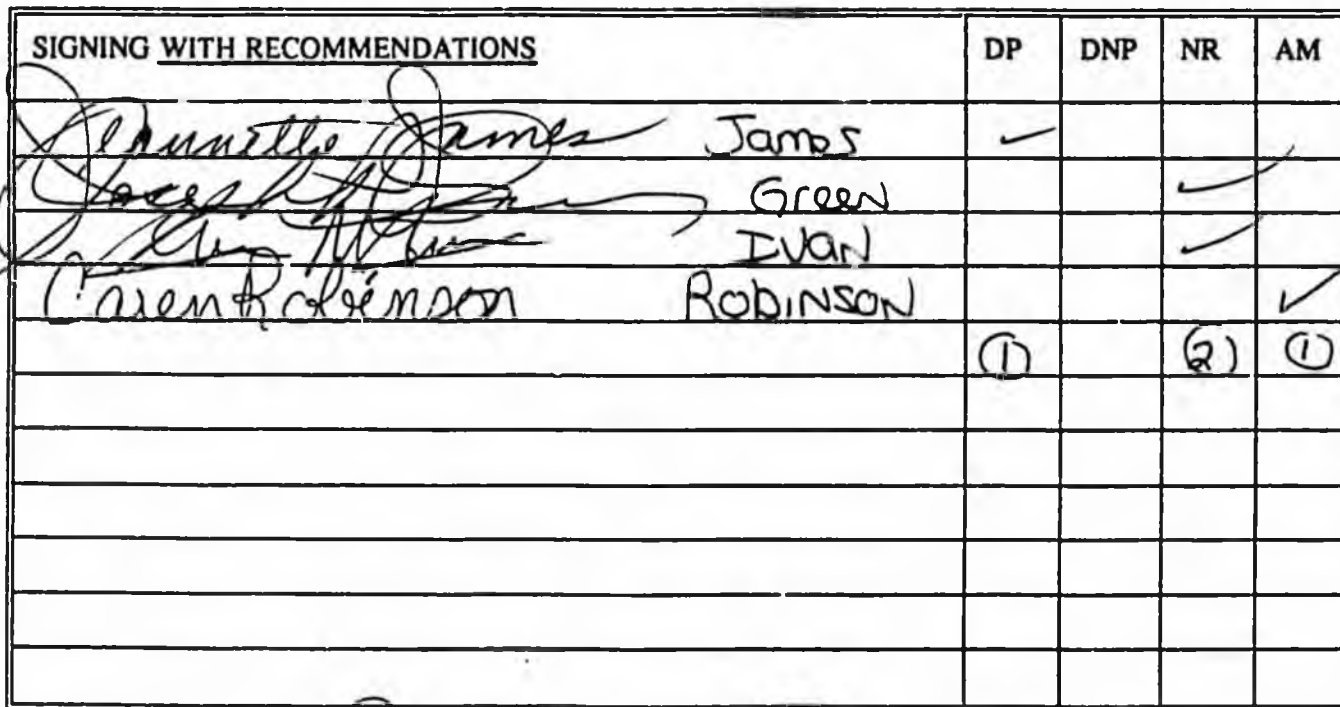 SIGNING WITH RECOMMENDATIONS DP DNP NR AM
Jeannette James James ✓
Green ✓
Ivan ✓
Caren Robinson ROBINSON ✓
① ② ①